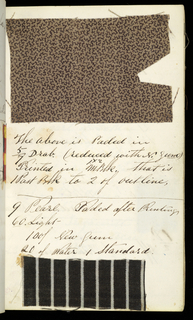 The above is Paded in
5/9 Drab (reduced with No Gum)
Printed in that is
1 Bk to 2 of outline,
9 Pearl Paded after Printing
60. Light
100/ New Gum
20 of Water 4 Standard